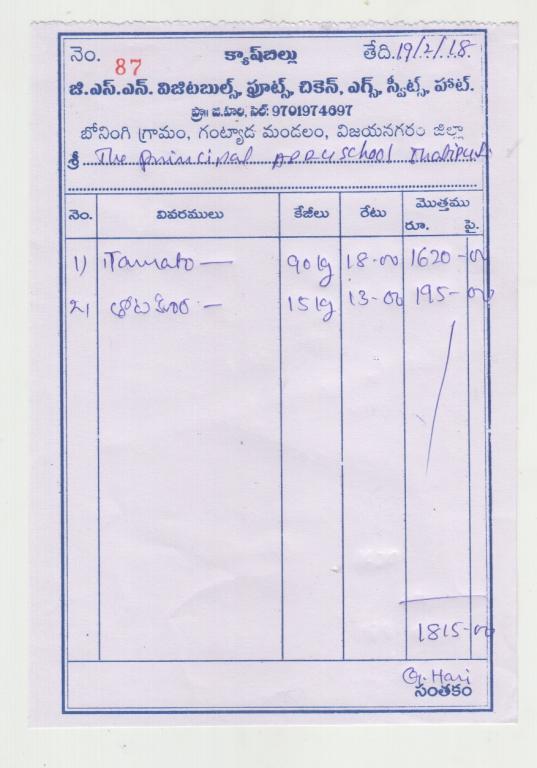 నెం. 87 క్యాష్‌బిల్లు తేది. 19/2/18
జి.ఎస్.ఎన్. విజిటబుల్స్, ఫ్రూట్స్, చికెన్, ఎగ్స్, స్వీట్స్, హాట్.
ప్రొ॥ జి.హరి, సెల్: 9701974697
బోనింగి గ్రామం, గంట్యాడ మండలం, విజయనగరం జిల్లా
శ్రీ The principal school
నెం. వివరములు కేజీలు రేటు మొత్తము
రూ. పై.
1) Tamato — 90 kg 18-00 1620-00
2) తోటకూర — 15 kg 13-00 195-00
1815-00
G. Hari
సంతకం